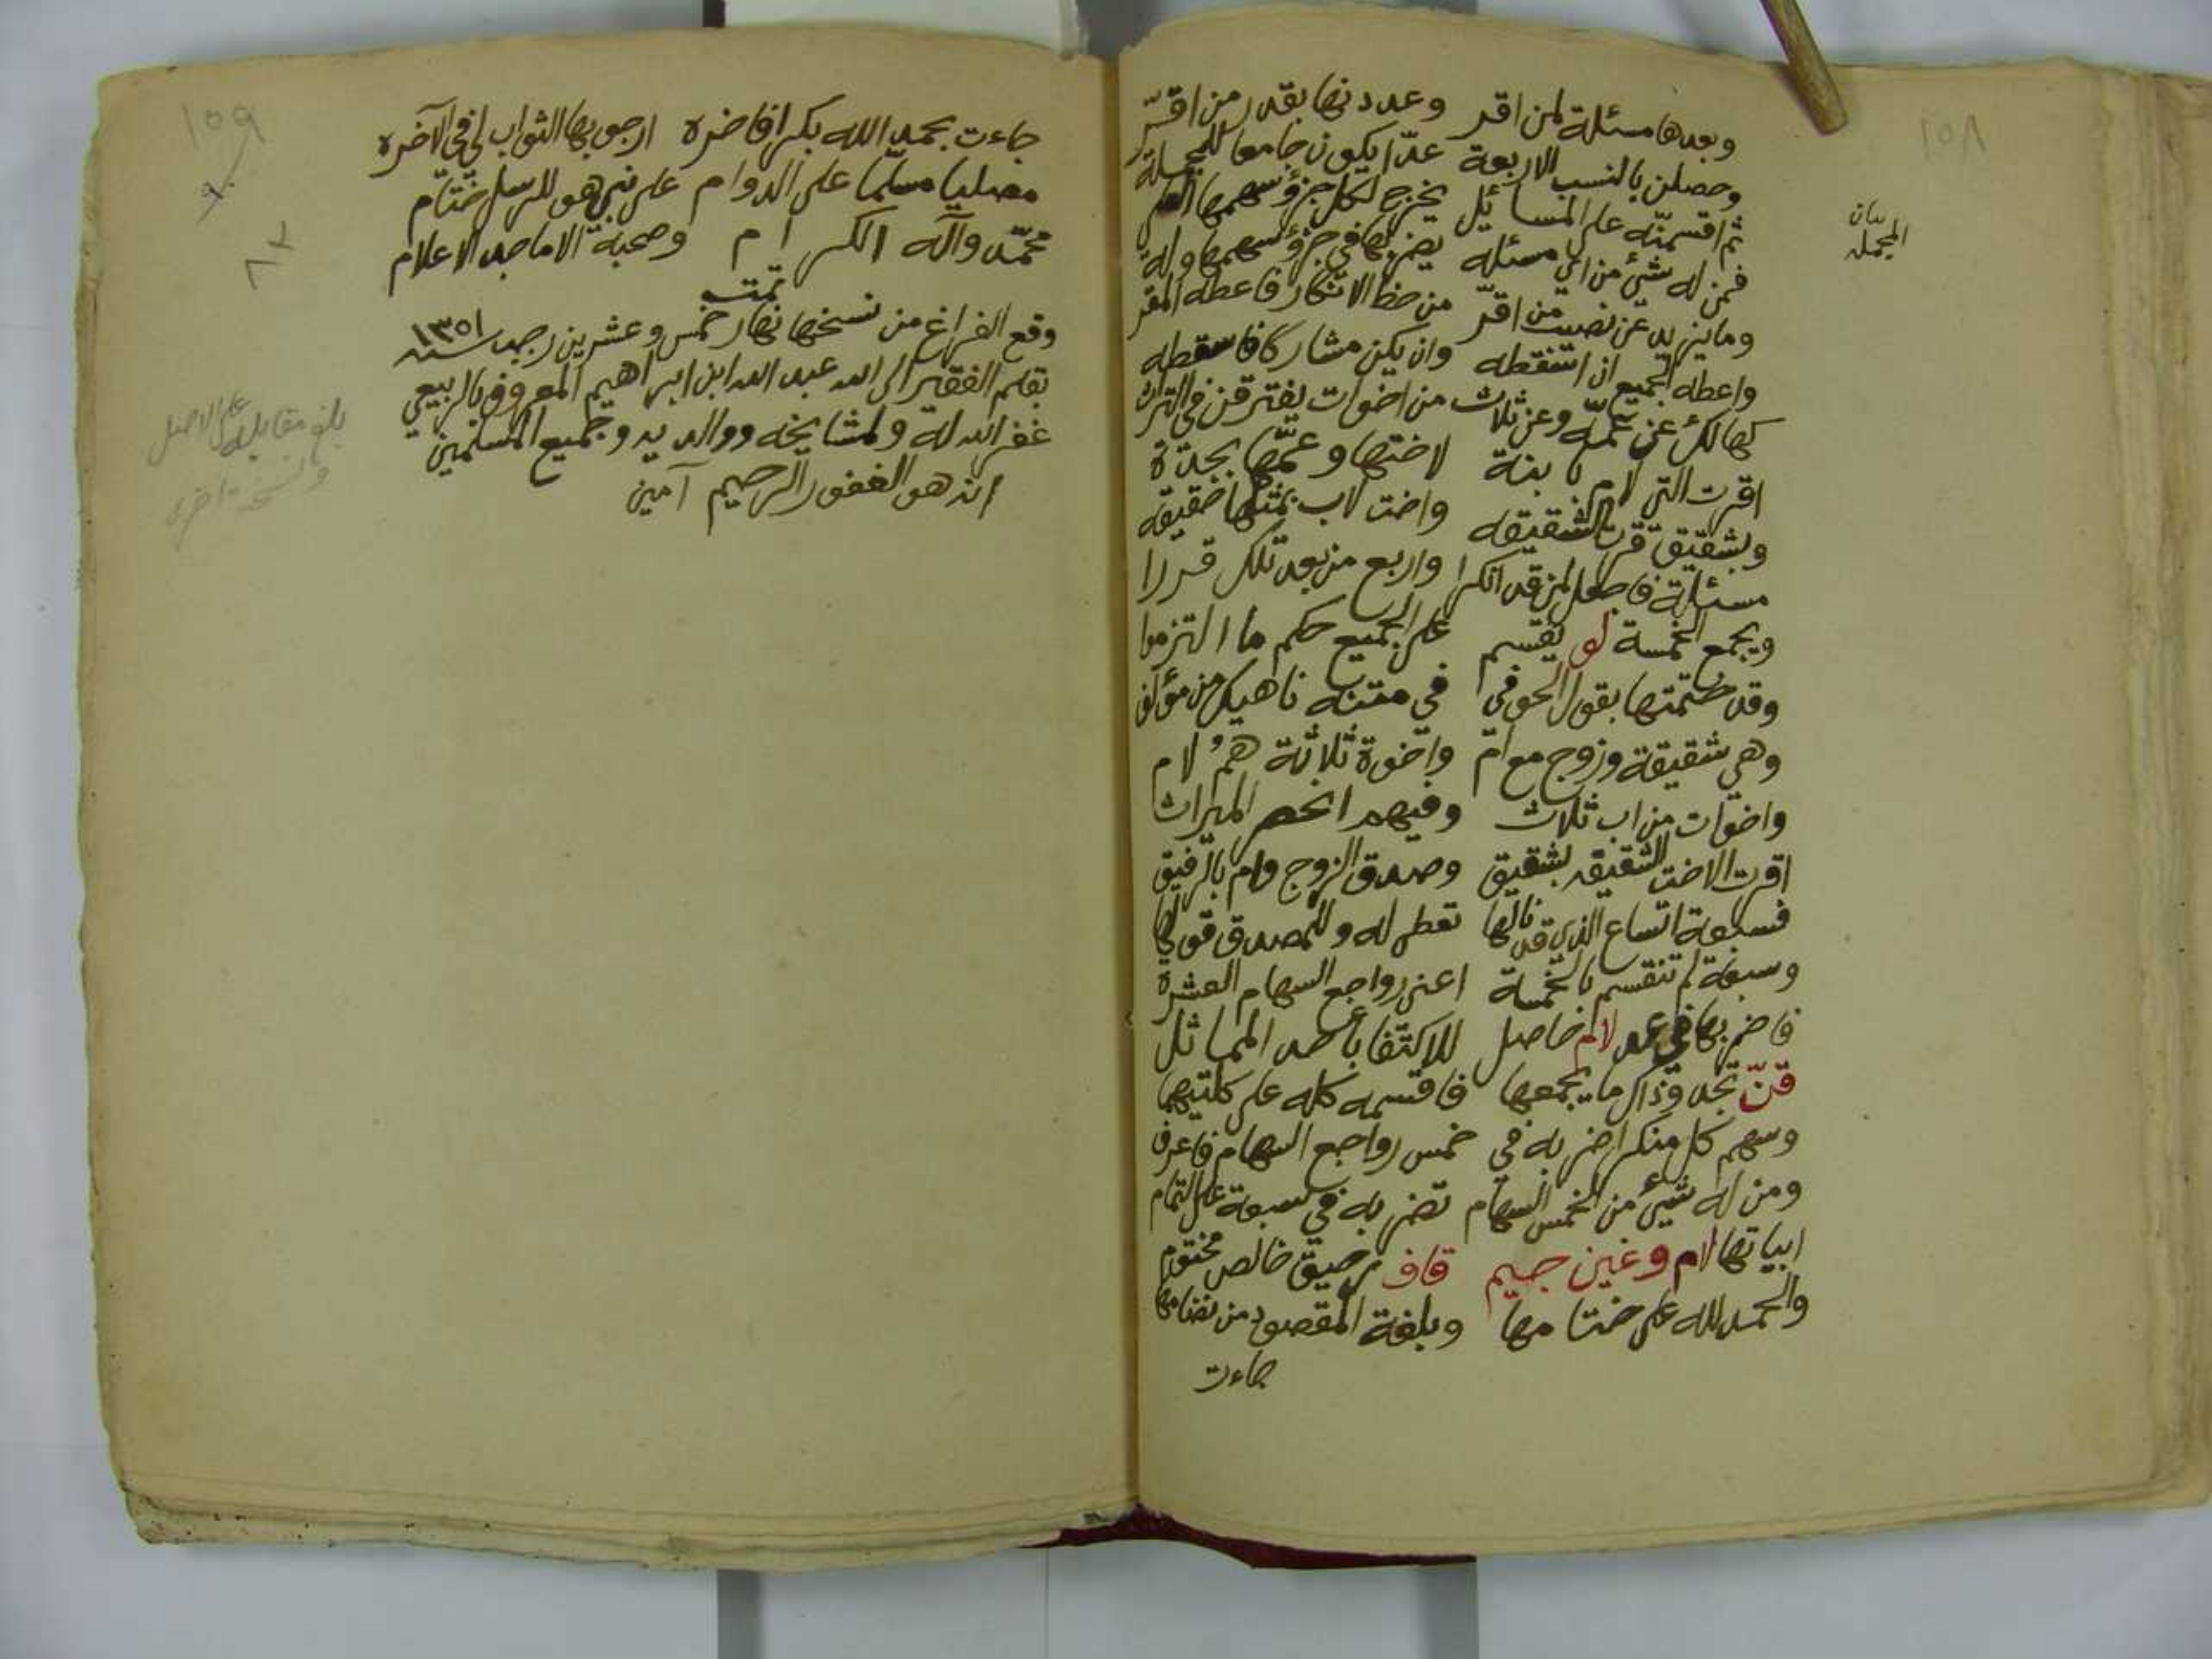 ١٥٨
وبعدها مسئلة لمن اقر وعددنها بقدر من اقرّ
وحصلن بالنسب الاربعة عدّا يكون جامعا للجملة
ثم اقسمنّه على المسائل يخرج لكل جزؤ سهمها
فمن له شيئ من اي مسئله يضربها في جزؤ سهمها وله
وما يزيد عن نصيب من اقرّ من حظ الانكار فاعطه المقر
واعطه الجميع ان اسقطه وان يكن مشاركا فاسقطه
كهالك عن عمّه وعن ثلاث من اخوات يفترقن في التراث
اقرت التي لام بابنة لاختها وعمّها بجدّة
وبشقيق قرت الشقيقه واخت لاب بمثلها حقيقه
مسئلة فاصعل لمن قد انكرا واربع من بعد تلك قررا
ويجمع الخمسة لو يقسم على الجميع حكم ما التزموا
وقد ختمتها بقول الحوفي في متنه ناهيك من مؤلف
وهي شقيقة وزوج مع امّ واخوة ثلاثة همُ لام
واخوات من اب ثلاث وفيهم انحصر الميراث
اقرت الاخت الشقيقه بشقيق وصدق الزوج وام بالرفيق
فسبعة اتساع الذي قد نالها تعطى له وللمصدق قولها
وسبعة لم تنقسم بالخمسة اعني رواجع السهام العشرة
فاضربها في عد لام حاصل للاكتفا باحد المماثل
قنّ تجد وذاك ما يجمعها فاقسمه كله على كلتيهما
وسهم كل منكر اضربه في خمس رواجع السهام فاعرف
ومن له شيئ من الخمس السهام تضربه في سبعة على التمام
ابياتها لام وغين جيم قاف رحيق خالص مختوم
والحمد لله على ختامها وبلغة المقصود من نضامها
جاءت
بيان
المجمله
١٥٩
جاءت بحمد الله بكرا فاخره ارجو بها الثواب لي في الآخره
مصليا مسلما على الدوام على نبي هو للرسل ختّام
محمّد وآله الكرام وصحبة الاماجد الاعلام
تمت
وقع الفراغ من نسخها نهار خمس وعشرين رجب سنه ١٣٥١
بقلم الفقير الى الله عبد الله ابن ابراهيم المعروف بالربيعي
غفر الله له ولمشايخه ووالديه وجميع المسلمين
انه هو الغفور الرحيم آمين
بلغ مقابله على الاصل
ونسخة اخرى